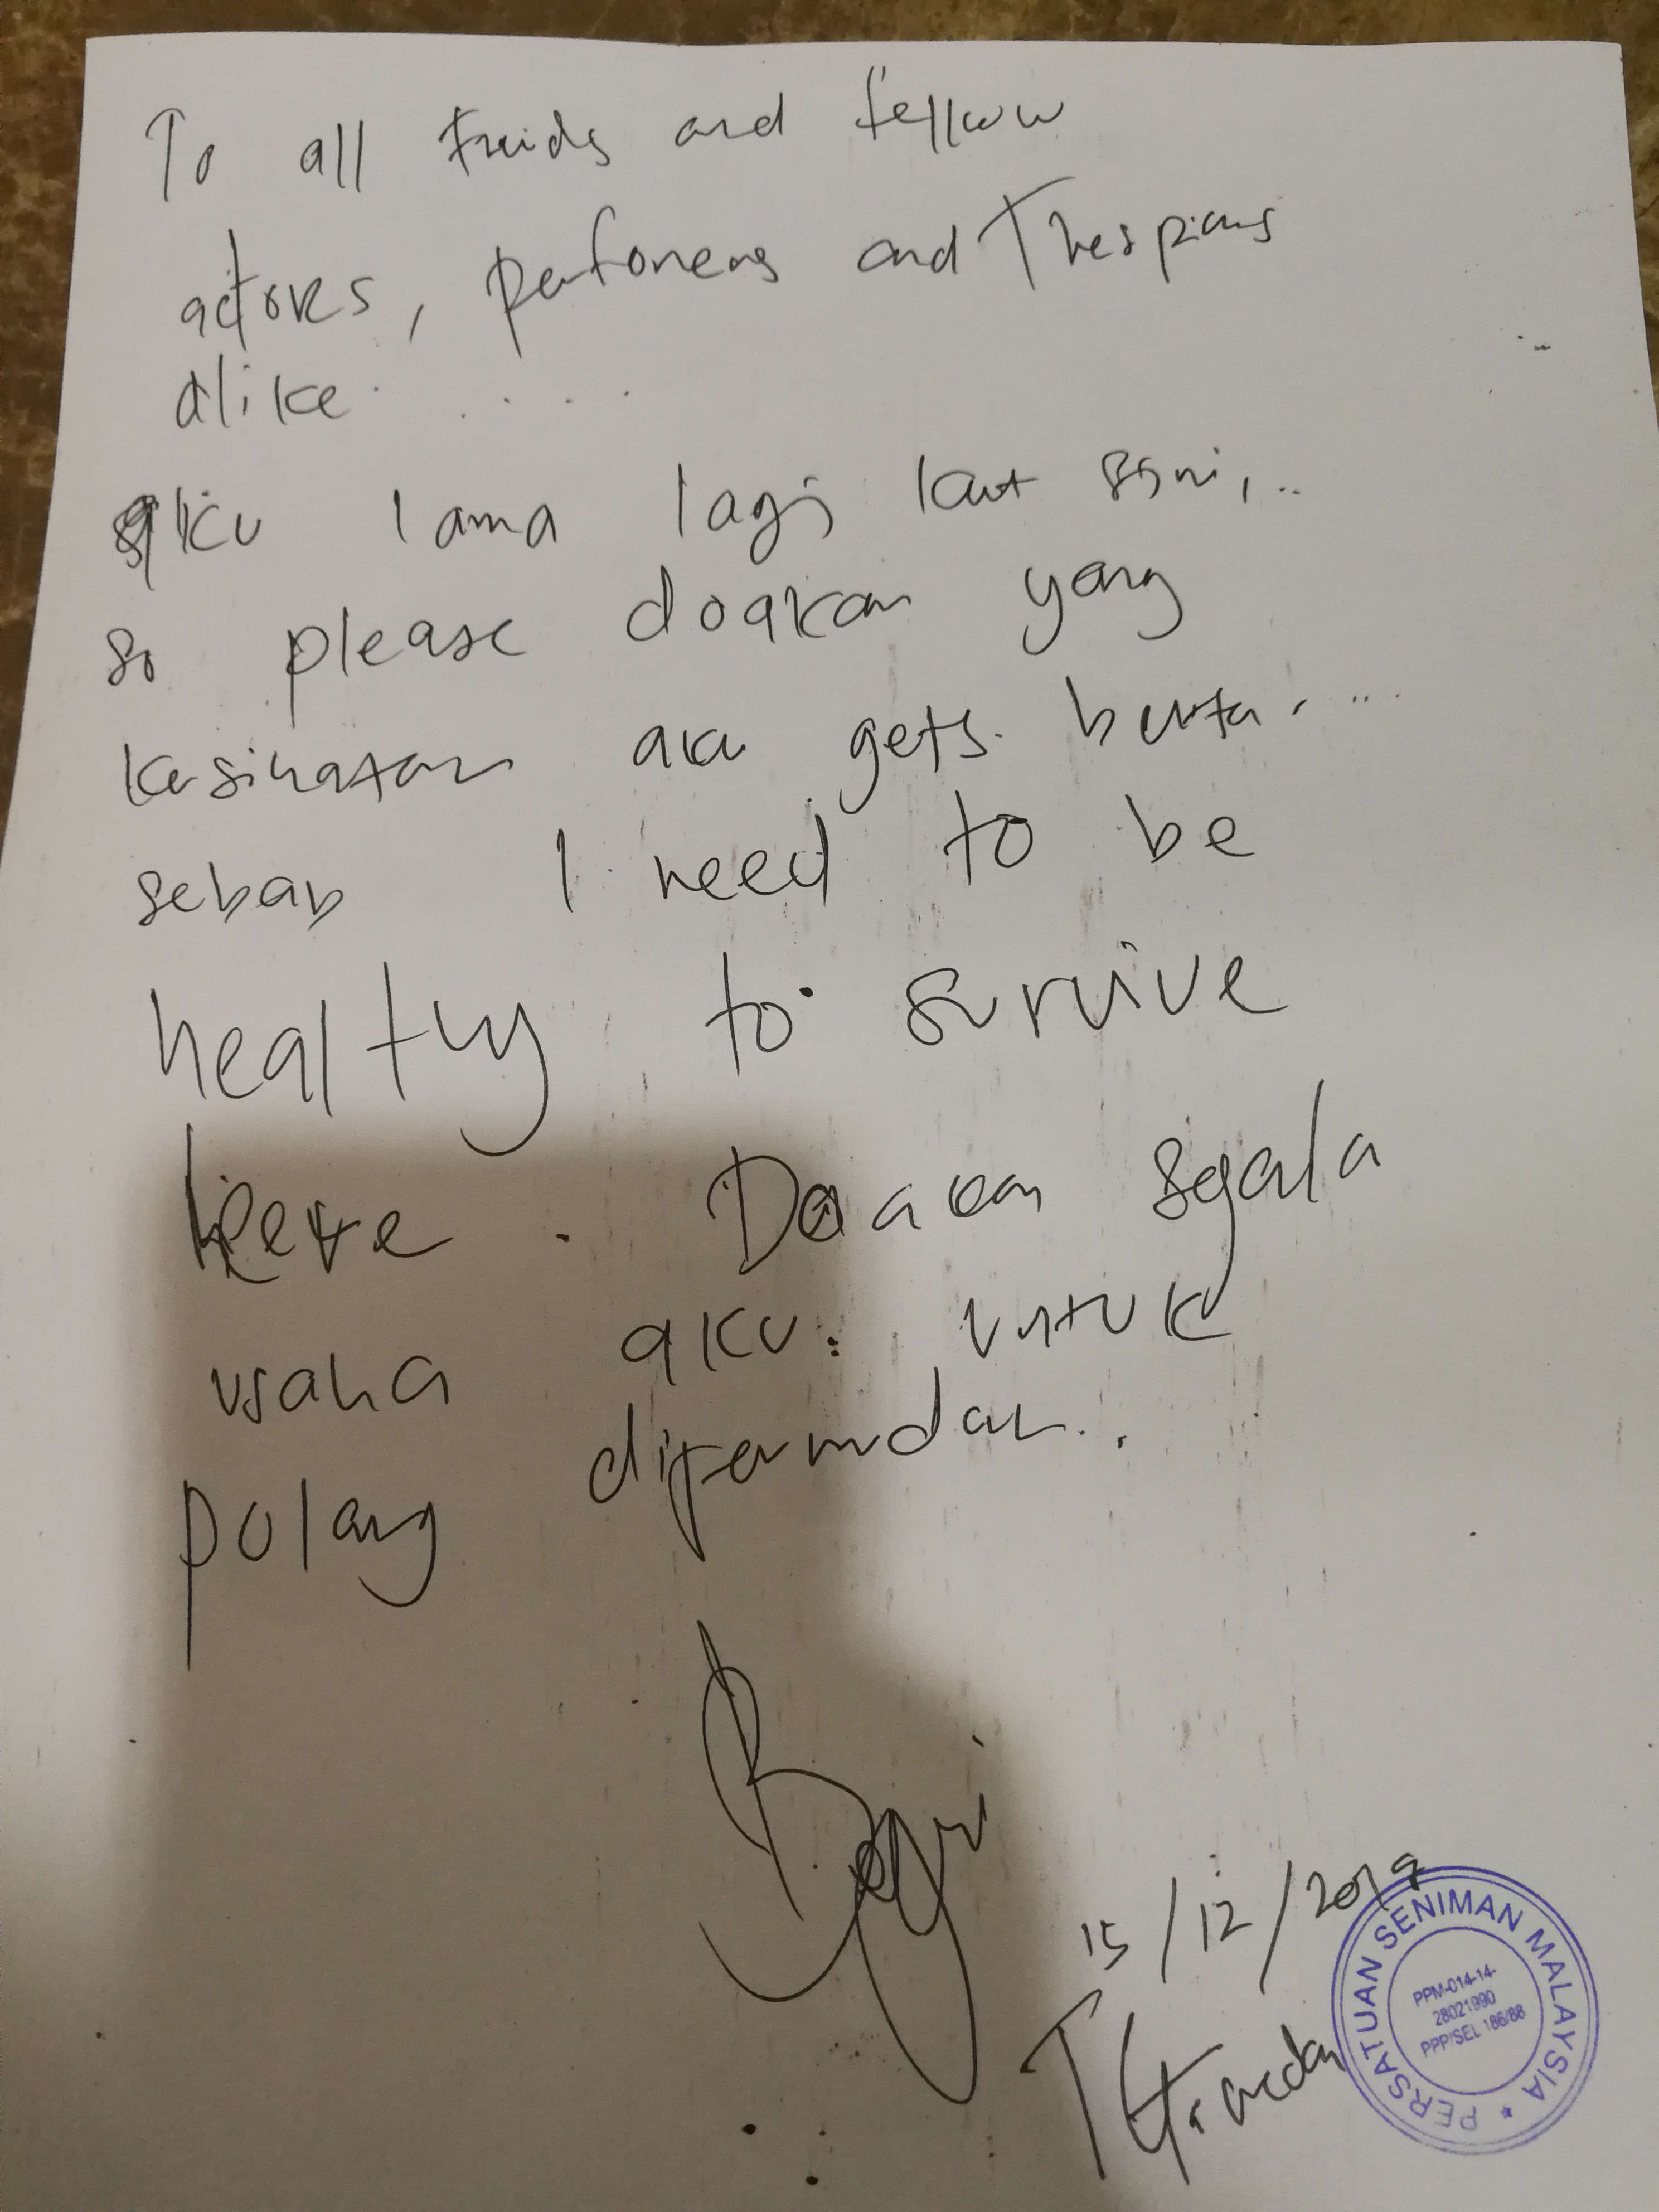 To all Freids and fellow
actors, perfomers and Thespians
alike .....
aku lama lagi kat ssni, ..
so please doakan yang
kesihatan aku gets. better. ...
sebab I need to be
healthy to survive
here . Doakan sgala
usaha aku. untuk
pulang dipermudah..
15/12/2019
PERSATUAN SENIMAN MALAYSIA *
PPM-014-14-
28021990
PPP/SEL 186/88